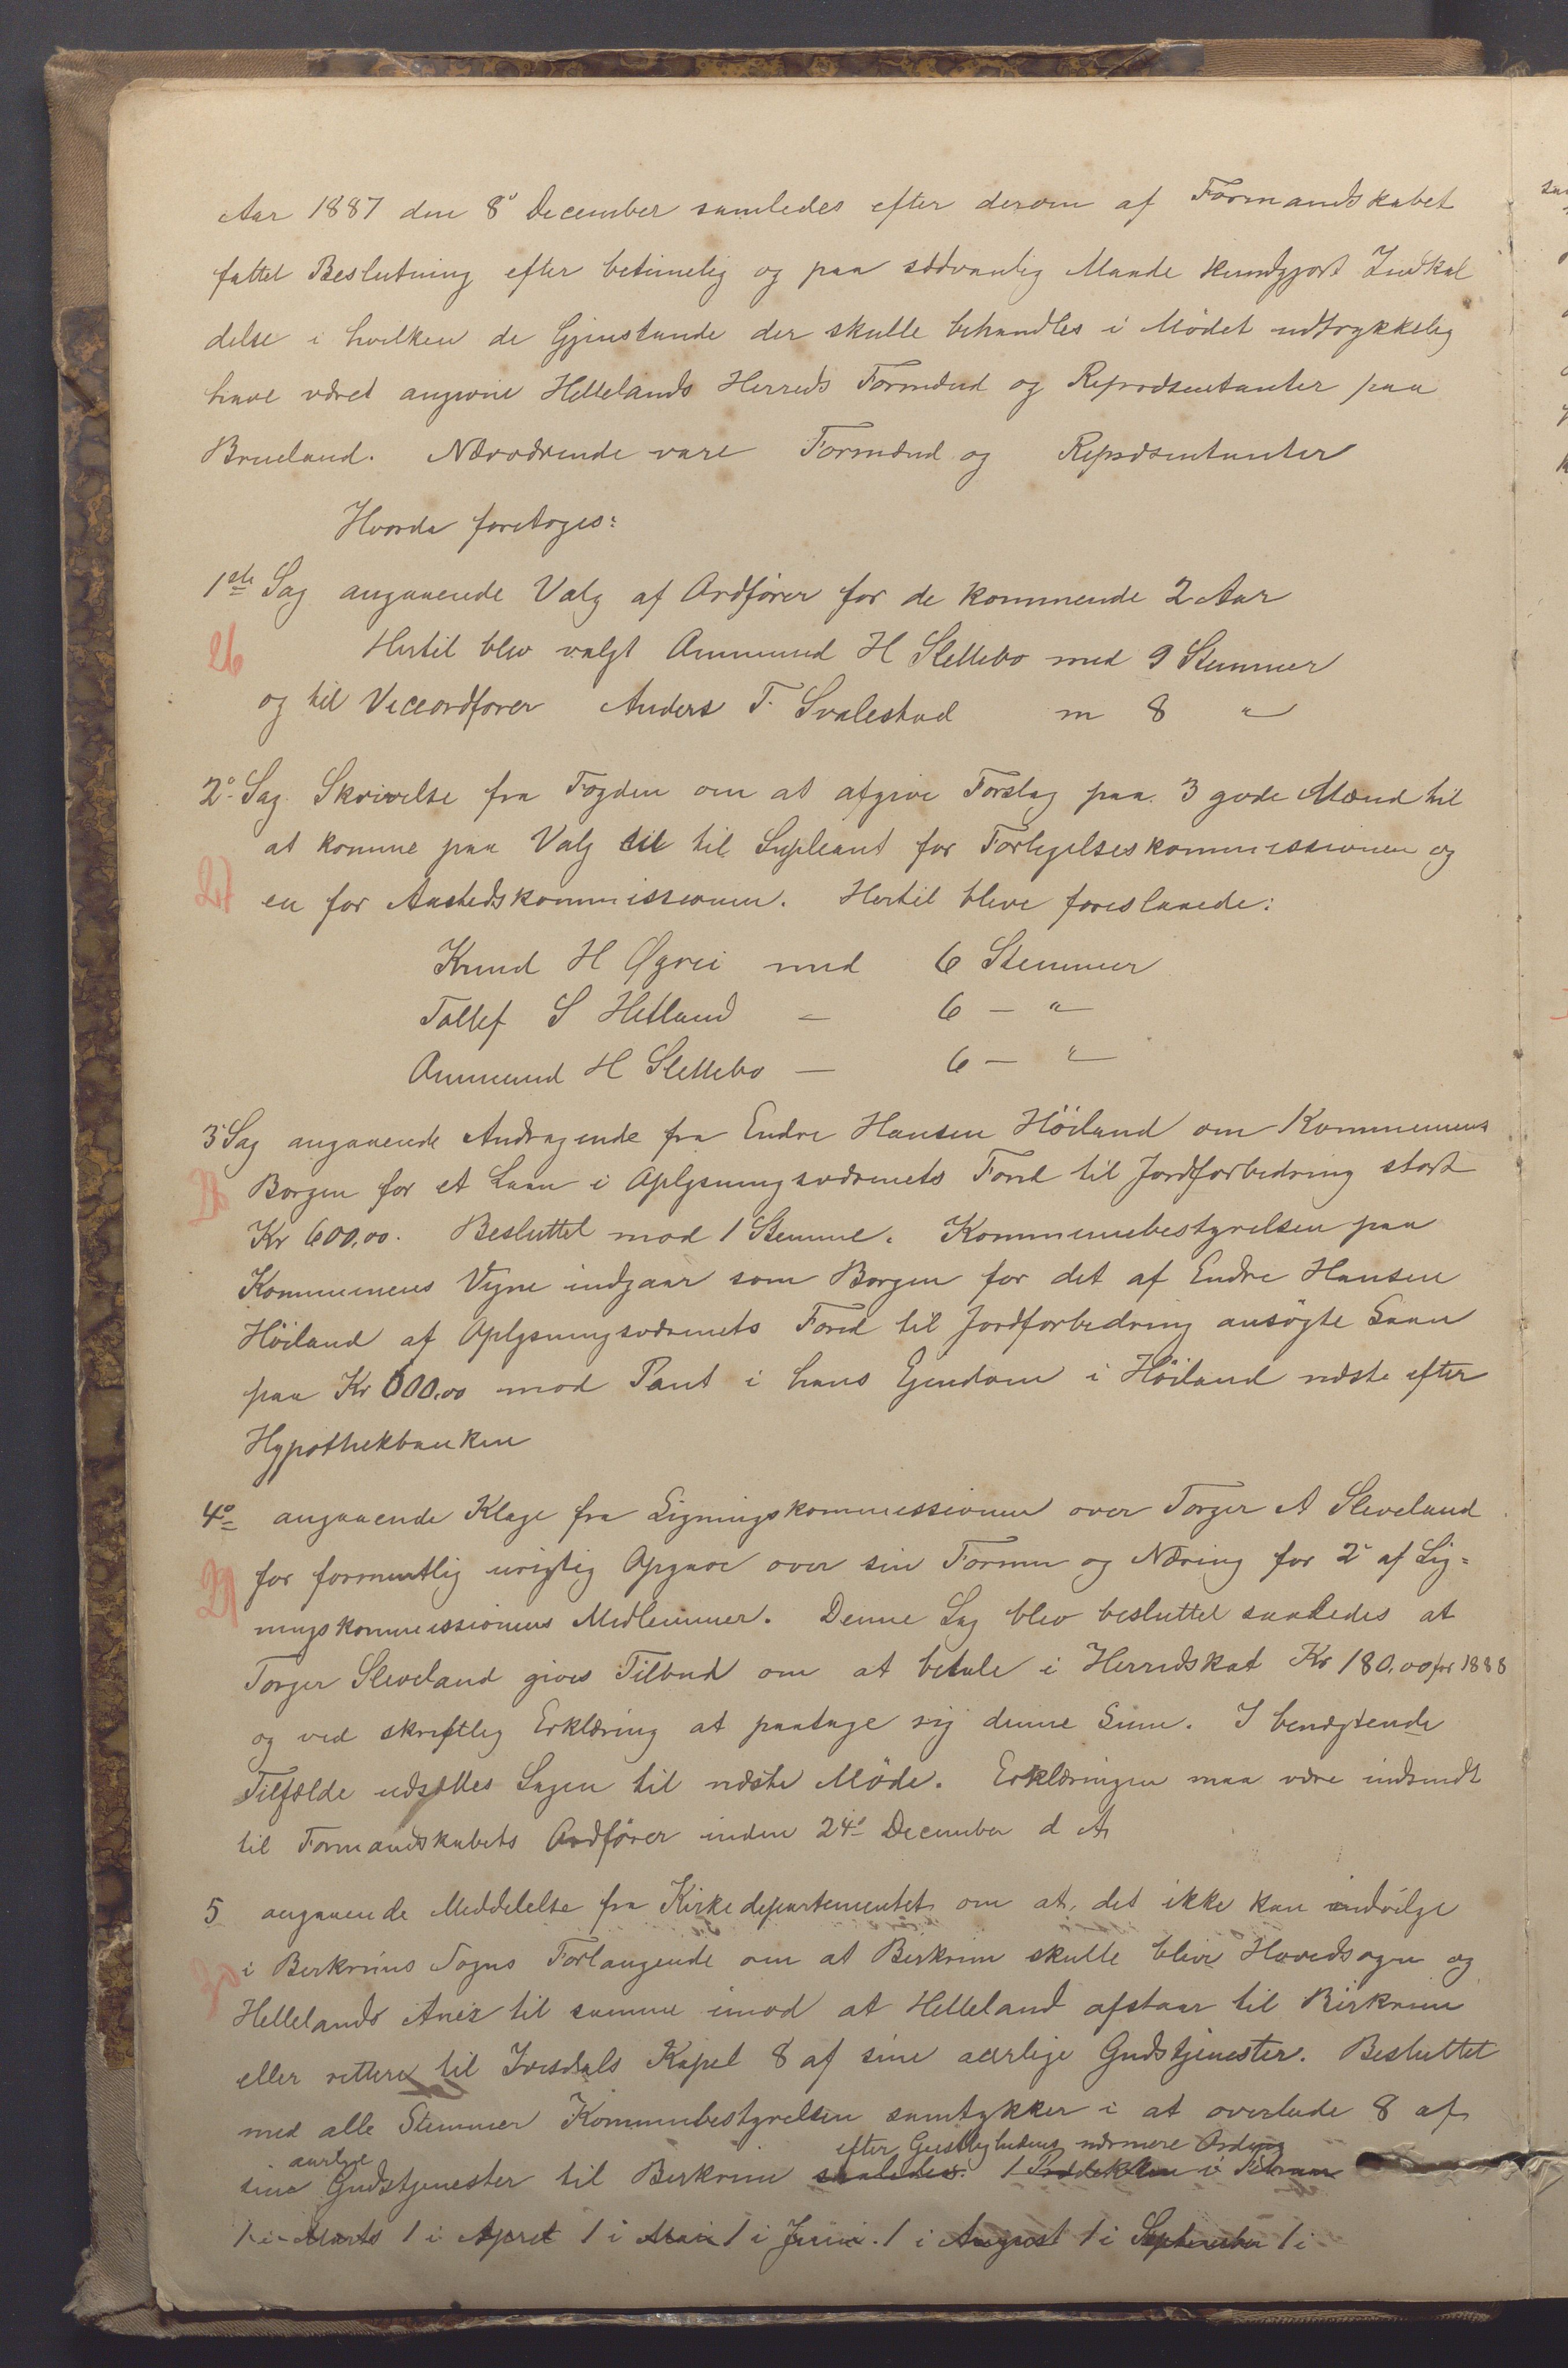 Aar 1887 den 8de December samledes efter derom af Formandskabet
fattet Beslutning efter betimelig og paa sædvanlig Maade kundgjort Indkal
delse i hvilken de Gjenstande der skulle behandles i Mødet udtrykkelig
have været angivne Hellelands Herreds Formænd og Repræsentanter paa
Brueland. Nærværende vare Formænd og Repræsentanter
Hvorda foretoges:
1ste Sag angaaende Valg af Ordfører for de kommende 2 Aar
26 Hertil blev valgt Ammund H Slettebø med 9 Stemmer
og til Viceordfører Anders T. Svalestad m 8 "
2° Sag. Skrivelse fra Fogden om at afgive Forslag paa 3 gode Mænd til
at komme paa Valg til til Supleant for Forligelseskommissionen og
27 en for Aastedskommissionen. Hertil bleve foreslaaede:
Knud H Øgrei med 6 Stemmer
Tollef S Hetland – 6 – "
Ammund H Slettebø – 6 – "
3 Sag angaaende Andragende fra Endre Hansen Höiland om Kommunens
28 Borgen for et Laan i Oplysningsvæsenets Fond til Jordforbedring stort
Kr 600,00. Besluttet mod 1 Stemme. Kommunebestyrelsen paa
Kommunens Vegne indgaar som Borgen for det af Endre Hansen
Höiland af Oplysningsvæsenets Fond til Jordforbedring ansögte Laan
paa Kr 600,00 mod Pant i hans Ejendom i Höiland næste efter
Hypothekbanken
4° angaaende Klage fra Ligningskommissionen over Torger A Sleveland
29 for formentlig urigtig Opgave over sin Formue og Næring for 2 af Lig=
ningskommissionens Medlemmer. Denne Sag blev besluttet saaledes at
Torger Sleveland gives Tilbud om at betale i Herredskat Kr 180,00 for 1888
og ved skriftlig Erklæring at paatage sig denne Sum. I benægtende
Tilfælde udsættes Sagen til næste Möde. Erklæringen maa være indsendt
til Formandskabets Ordfører inden 24° December d A
5 angaaende Meddelelse fra Kirkedepartementet om at det ikke kan indvilge
30 i Berkrims Sogns Forlangende om at Berkrim skulle blive Hovedsogn og
Hellelands Anex til samme imod at Helleland afstaar til Birkrim
eller rettere til Ivesdals Kapel 8 af sine aarlige Gudstjenester. Besluttet
med alle Stemmer Kommunebestyrelsen samtykker i at overlade 8 af
aarlige efter Geistlighedens nærmere Ordning
sine Gudstjenester til Berkrim saaledes. 1 i Februar
1 i Marts 1 i April 1 i Mai 1 i Juni. 1 i August 1 i September 1 i